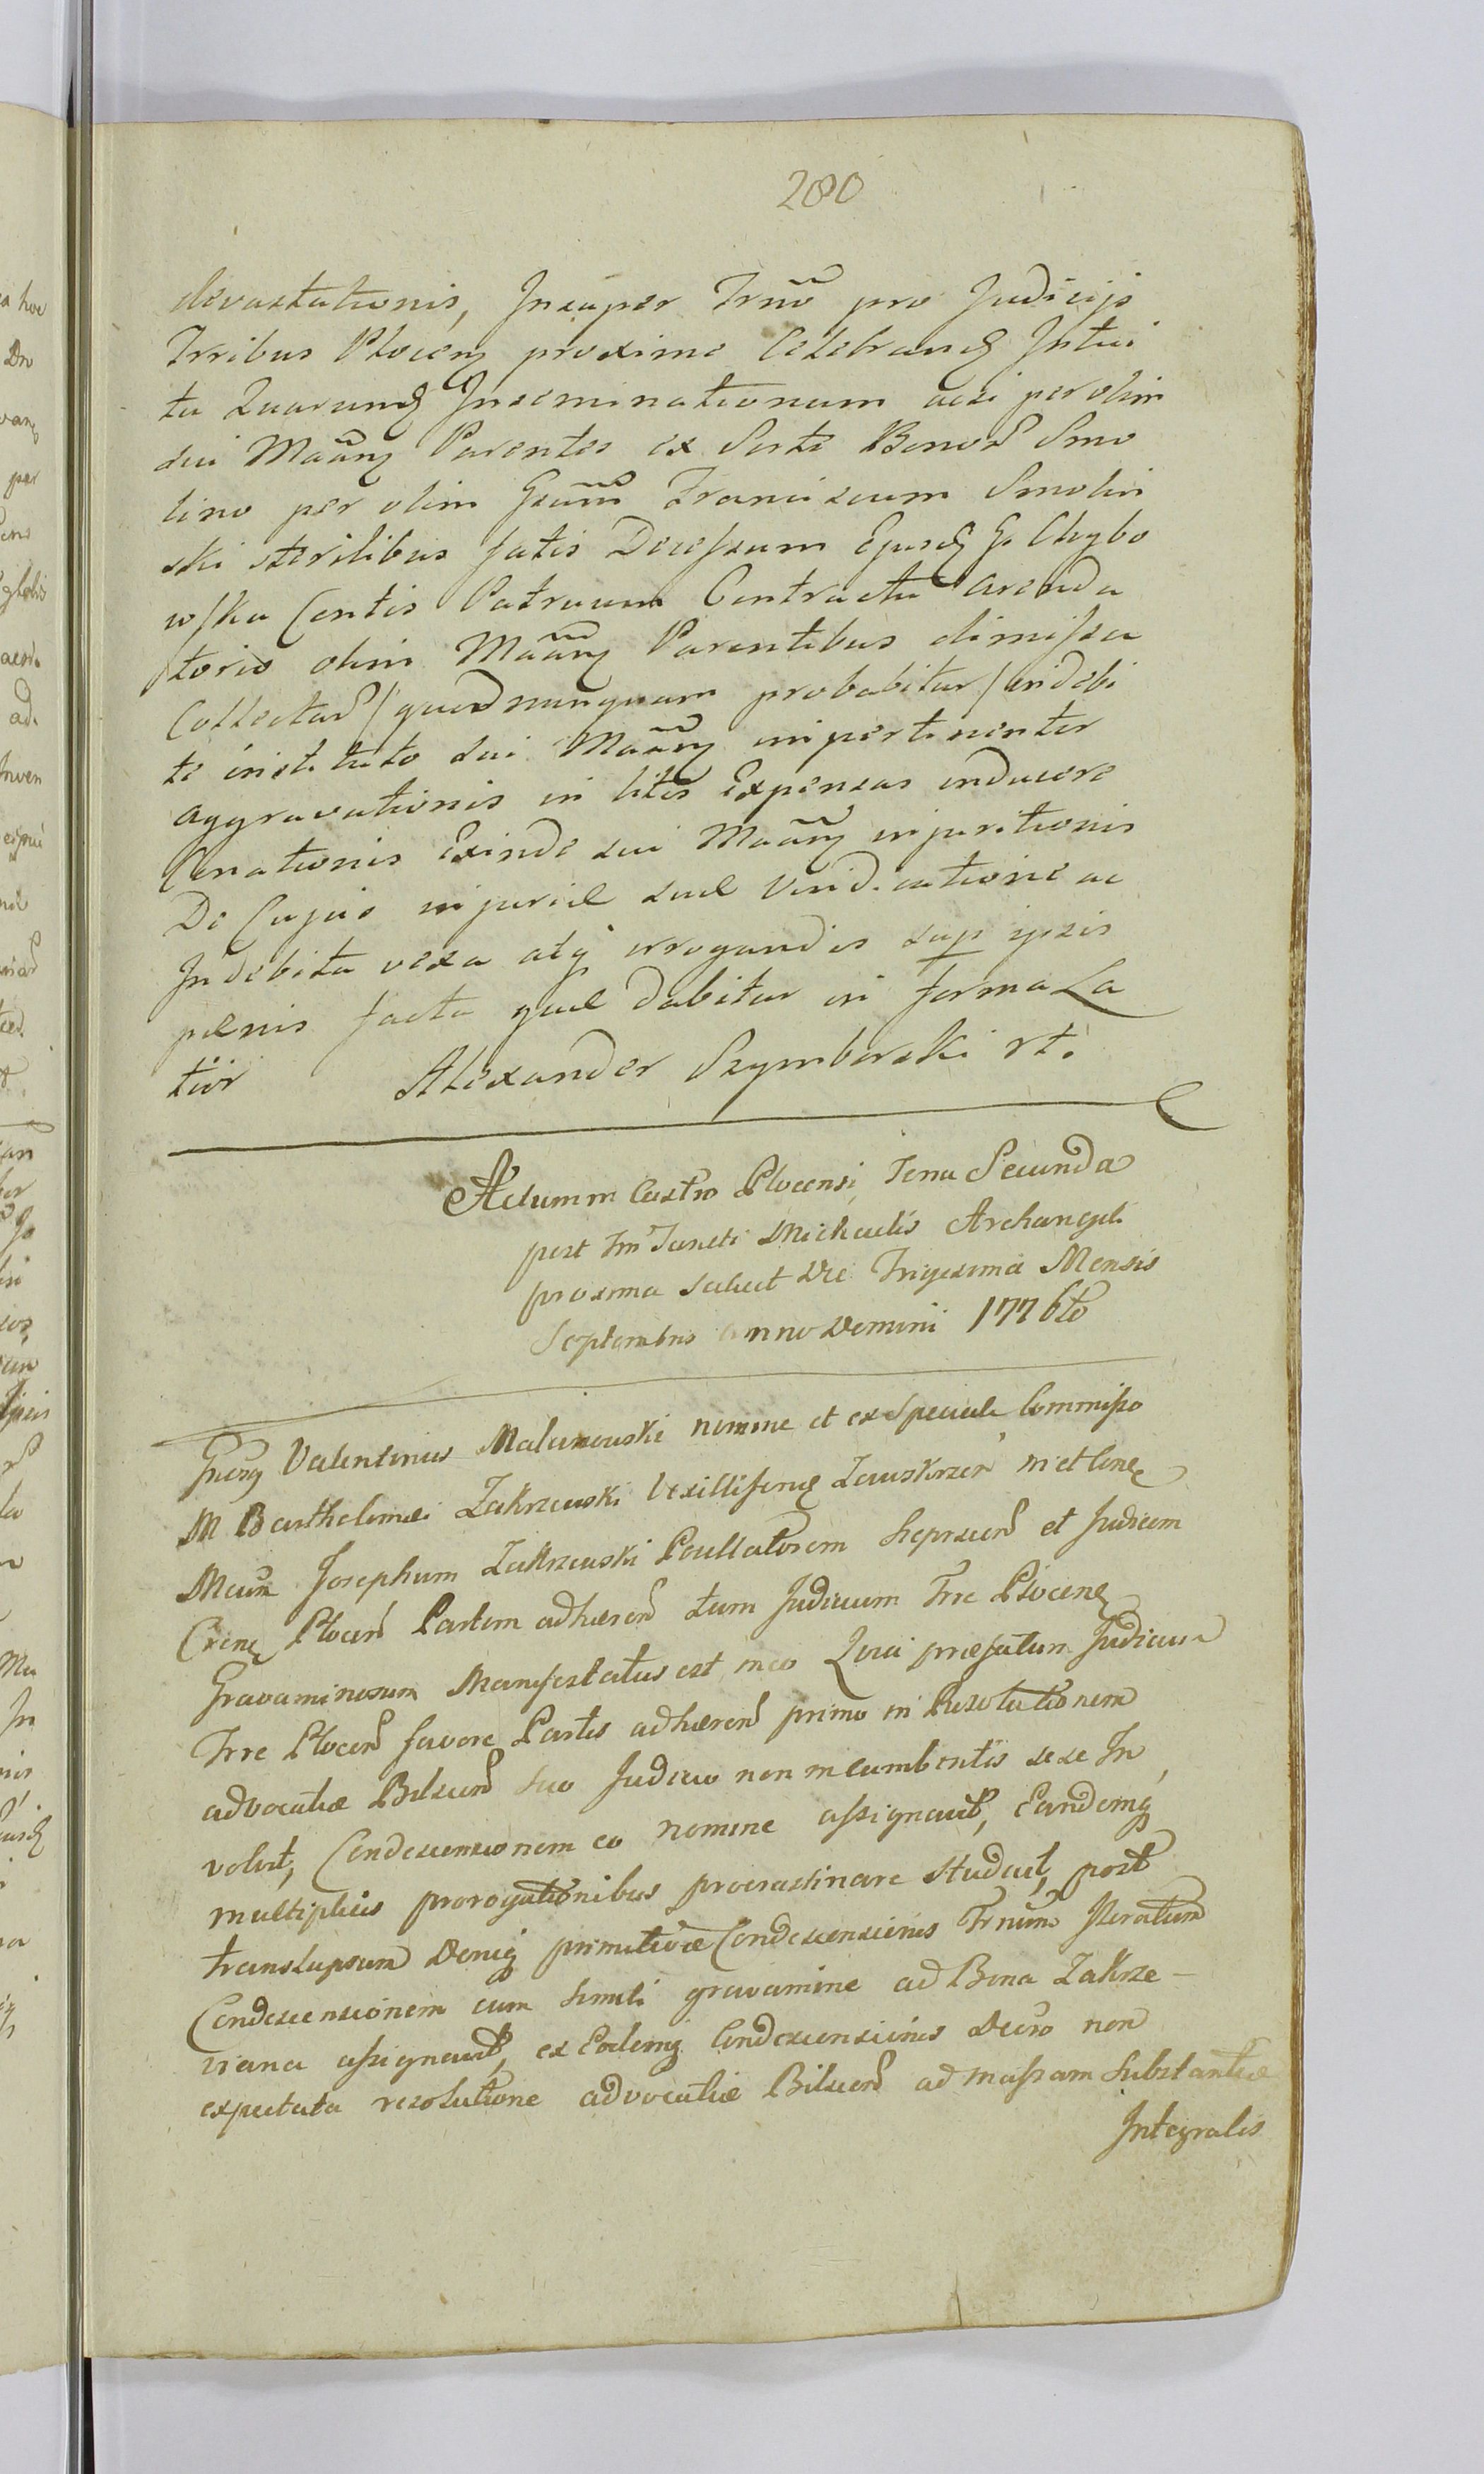 280
devastationis, Insuper Trño pro Judicijs
Trribus Plocen proxime Celebrand Intui
tu Quarund Inseminationum acsi per olim
sui Maãn Parentes ex Sorte Bonor Smo
lino per olim Gsũm Franciscum Smolin
ski sterilibus fatis Decessum Ejusd G Chybo
wska Centis Patruum Contractu Arenda
torio olim Maãn Parentibus dimissa
Collectar / quod nunquam probabitur / indebi
te instituto sui Maãn impertinenter
aggravationis in litis Expensas inducere
Conationis Exinde sui Maãn injuritionis
De Cujus injuriæ suæ Vindicatione ac
Indebita vexa atq irrogandis sup ipsis
pænis facta quæ dabitur in forma La
tiör Alexander Szymborski rt.
Actum in Castro Plocensi Feria Secunda
post Fm Sancti Michaelis Archangeli
proxima scilicet Die Trigesima Mensis
Septembris Anno Domini 1776to
Gnesq Valentinus Malinowski nomine et ex speciali Commisso
M Barthelomei Zakrzewski Vexilliferi Zawskrzen in et cone
Mcum Josephum Zakrzewski Pocillatorem Sieprcen et Judicem
Crene Plocen Partem adhæren tum Judicium Trre Plocene
Gravaminosum Manifestatus est in eo Quia præfatum Judicium
Trre Plocen favore Partis adhæren primo in Resolutionem
advocatiæ Bilscen suo Judicio non incumbentis sese In
volvt, Condescensionem eo nomine assignavit, Eandemq
multiplicis prorogationibus procrastinare studuit, post
translapsum Deniq primitivæ Condescensionis Trnum Iteratum
Condescensionem cum simili gravamine ad Bona Zakrze-
viana assignavit, ex Eademq Condescensionis Decro non
expectata resolutione advocatiæ Bilscen ad massam Substantiæ
Integralis